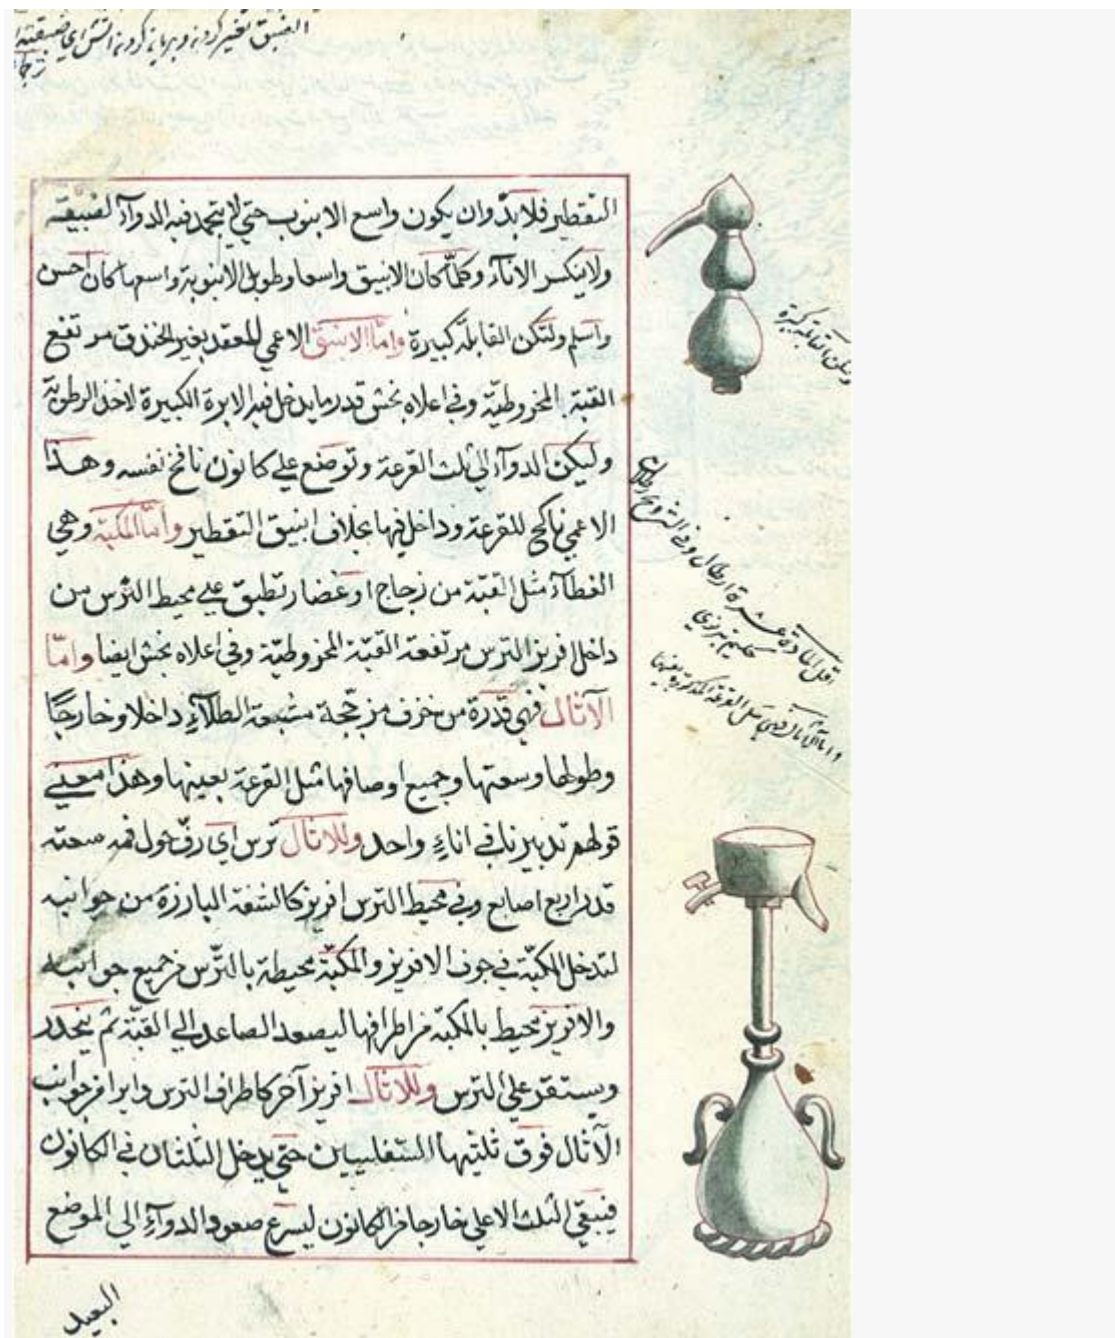 الضيق تغير كردن و بريان كردن
التقطير فلابدّ وان يكون واسع الانبوب حتي لا يتجمد فيه الدوآء لضيقه
ولا ينكسر الانآء وكلمّا كان الانبيق واسعا وطويل الانبوبة واسعها كان احسن
واسلم ولتكن القابلة كبيرة وامّا الانبيق الاعمي للعقد بغير الخندق مرتفع
القبّة المخروطيّة وفي اعلاه بخش قدر ما يدخل فيه الابرة الكبيرة لاخذ الرطوبة
وليكن الدوآء الي ثلث القرعة وتوضع علي كانون نافخ نفسه وهذا
الاعمي ناكح للقرعة وداخل فيها بخلاف انبيق التقطير وأمّا المكبّة وهي
الغطآء مثل القبّة من زجاج او غضار تطبق علي محيط الترس من
داخل افريز الترس مرتفعة القبّة المخروطيّة وفي اعلاه بخش ايضا وامّا
الآثال فهي قدرة من خزف مزججة مشبعة الطلآء داخلا وخارجًا
وطولها وسعتها وجميع اوصافها مثل القرعة بعينها وهذا معني
قولهم تدبيرنا في اناء واحد وللآثال ترس اي رفّ حول فمه سعته
قدر اربع اصابع وفي محيط الترس افريز كالشفة البارزة من جوانبه
لتدخل المكبّة في جوف الافريز والمكبّة محيطة بالترّس من جميع جوانبه
والافريز محيط بالمكبّة من اطرافها ليصعد الصاعد الي القبّة ثم ينحدر
ويستقر علي الترس وللآثال افريز آخر كاطراف الترس دايرا من جوانب
الآثال فوق ثلثيها السّفليين حتي يدخل الثلثان في الكانون
فيبقي الثلث الاعلي خارجا من الكانون ليسرع صعود الدوآء الي الموضع
البعيد
ولتكن القابلة كبيرة
واما الآثال فهي مثل القرعة المذكورة بعينها